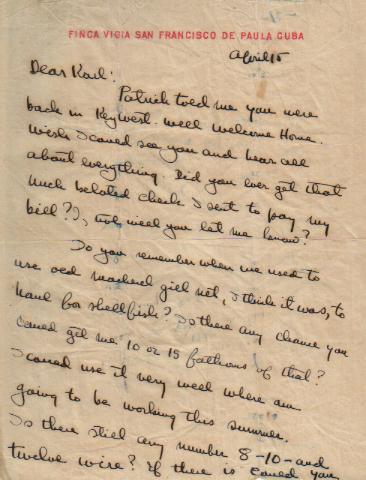 FINCA VIGIA SAN FRANCISCO DE PAULA CUBA
April 15
Dear Karl:
Patrick told me you were
back in Key West well Welcome Home.
Wish I could see you and hear all
about everything. Did you ever get that
much belated check I sent to pay my
bill? If not will you let me know?
Do you remember when we used to
use old mackerel gill net, I think it was, to
haul for shellfish? Is there any chance you
could get me 10 or 15 fathoms of that?
I could use it very well where am
going to be working this summer.
Is there still any number 8-10-and
twelve wire? If there is could you